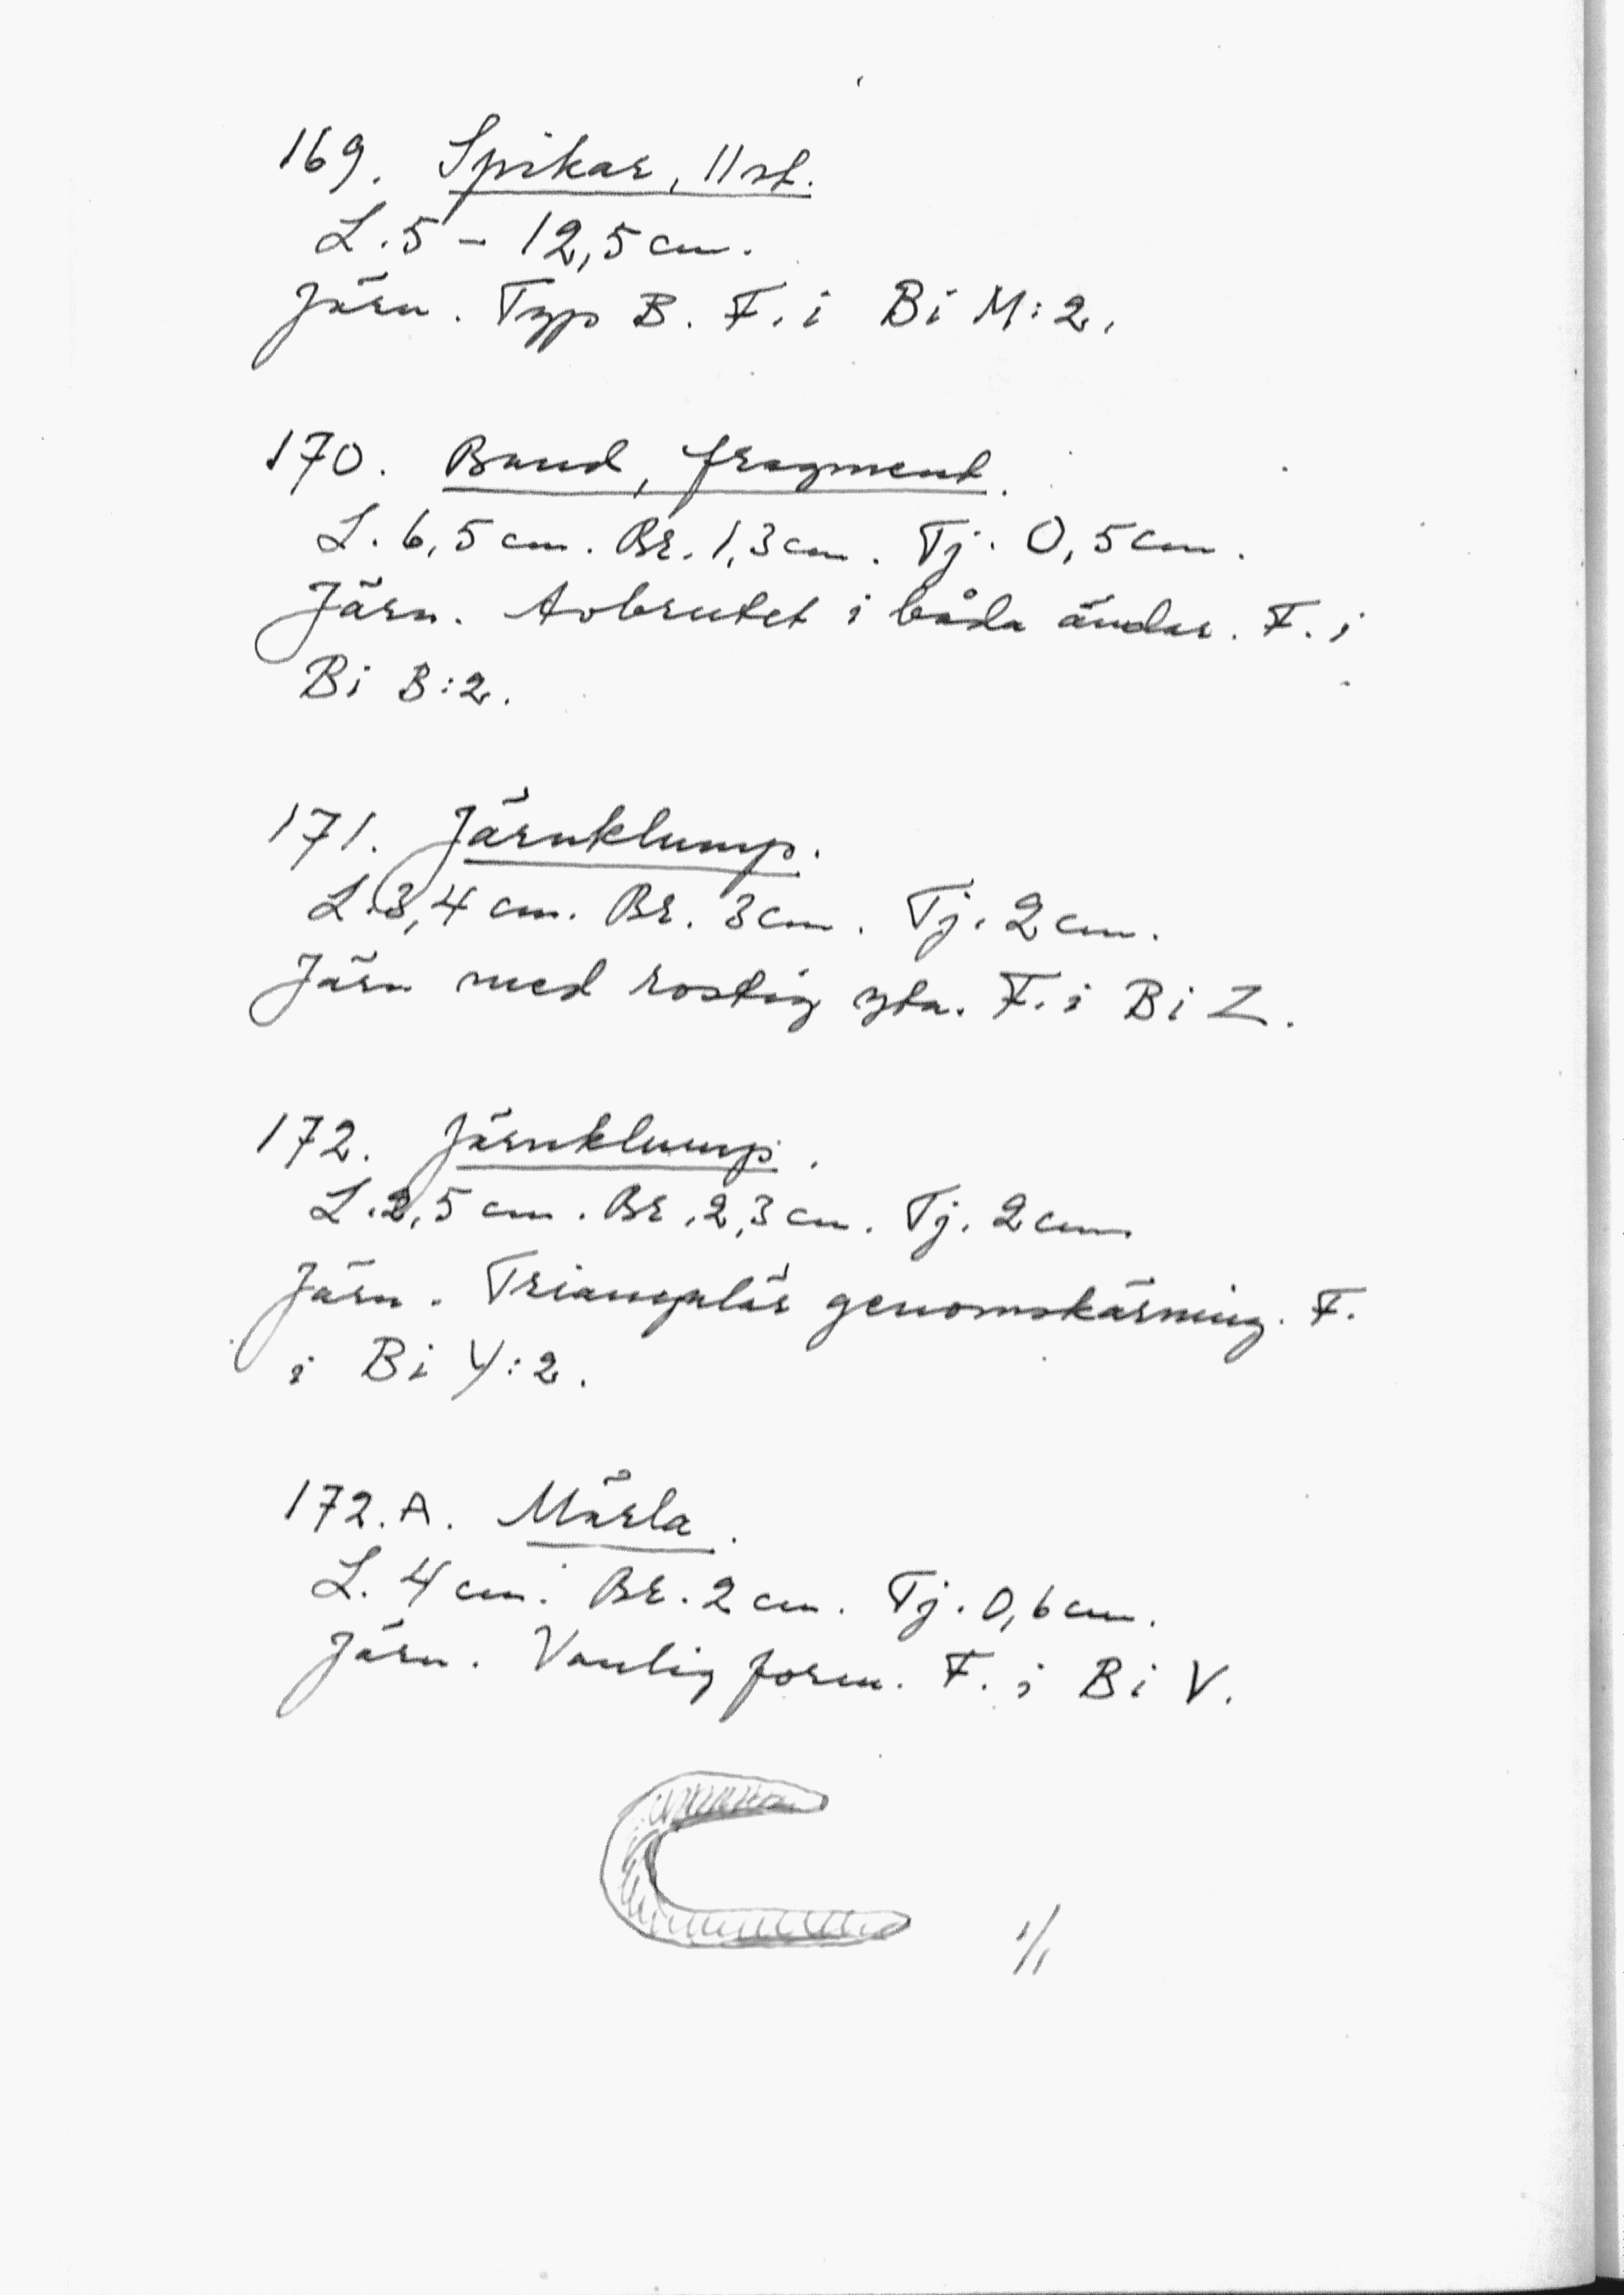 169. Spikar, 11 st.
L. 5 - 12,5 cm.
Järn. Typ B. F. i Bi M:2.
170. Band, fragment.
L. 6,5 cm. Br. 1,3 cm. Tj. 0,5 cm.
Järn. Avbrutet i båda ändar. F. i
Bi B:2.
171. Järnklump.
L. 3,4 cm. Br. 3 cm. Tj. 2 cm.
Järn med rostig yta. F. i Bi Z.
172. Järnklump.
L. 2,5 cm. Br. 2,3 cm. Tj. 2 cm.
Järn. Triangulär genomskärning. F.
i Bi Y:2.
172.A. Märla.
L. 4 cm. Br. 2 cm. Tj. 0,6 cm.
Järn. Vanlig form. F. i Bi V.
1/1